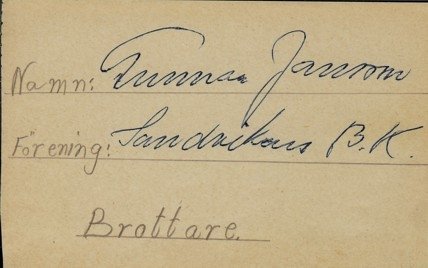 Namn: Gunnar Jansson
Förening: Sandvikens B.K.
Brottare.